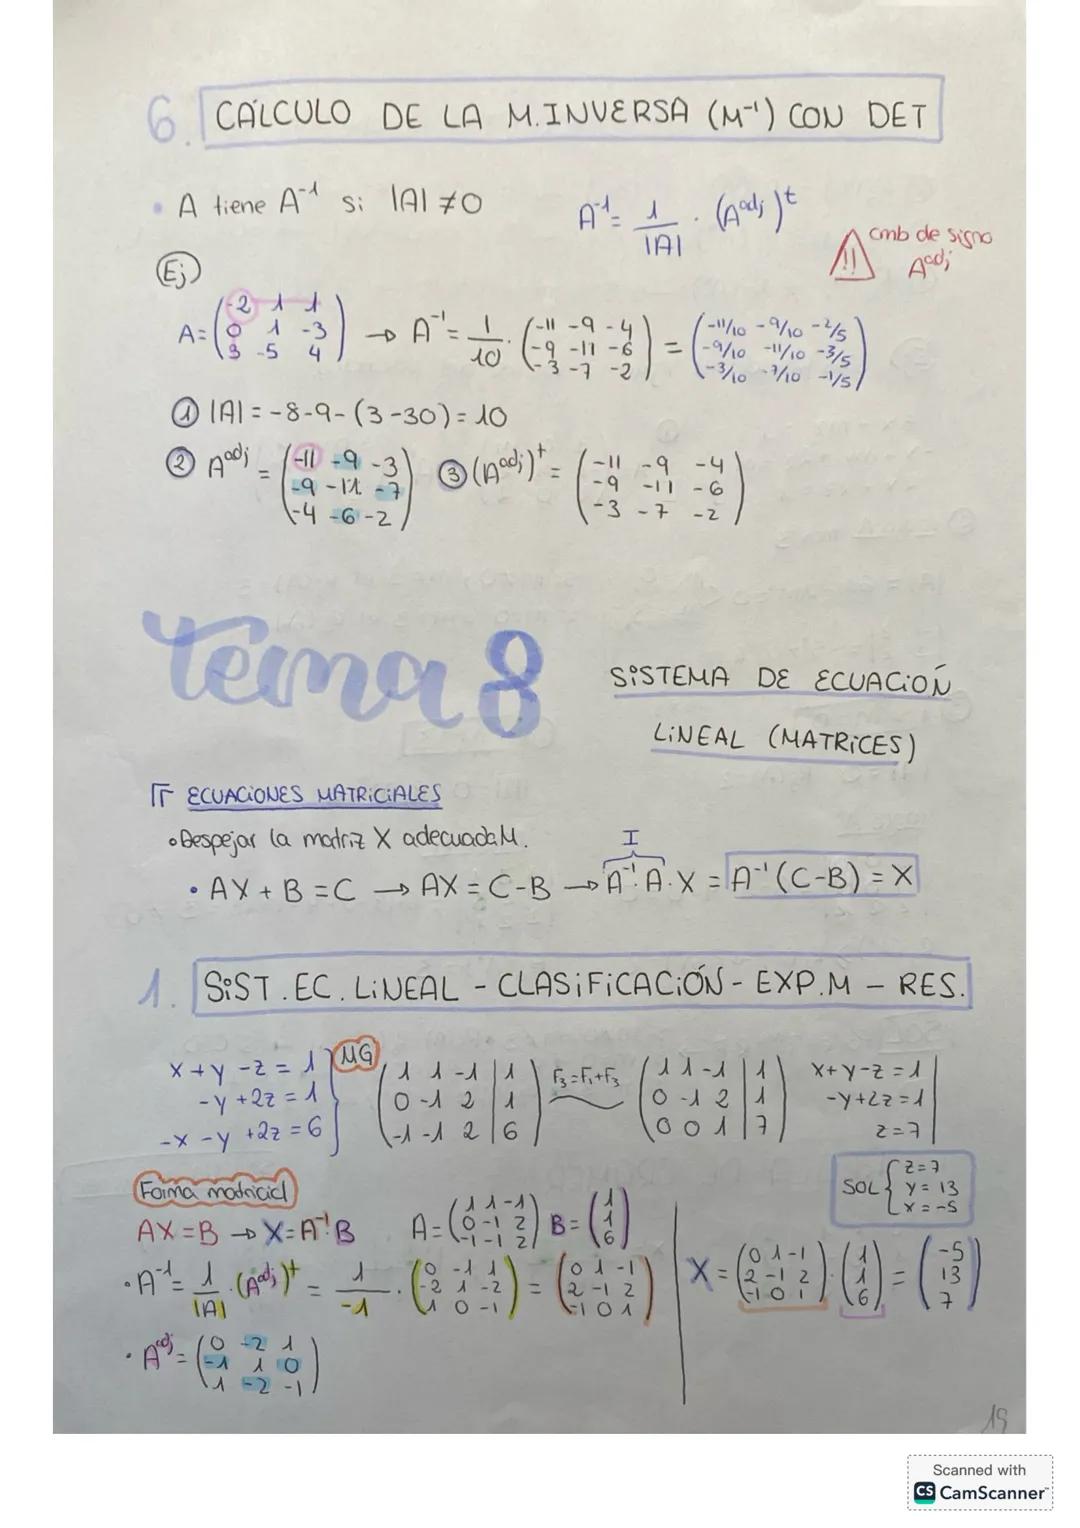 6. CÁLCULO DE LA M.INVERSA (M⁻¹) CON DET
• A tiene A⁻¹ si |A| ≠ 0
A⁻¹ = 1/|A| · (Aᵃᵈʲ)ᵗ
!! cmb de signo
Aᵃᵈʲ
Ej)
A = (-2 1 1 / 0 1 -3 / 3 -5 4) → A⁻¹ = 1/10 · (-11 -9 -4 / -9 -11 -6 / -3 -7 -2) = (-11/10 -9/10 -2/5 / -9/10 -11/10 -3/5 / -3/10 -7/10 -1/5)
① |A| = -8-9-(3-30) = 10
② Aᵃᵈʲ = (-11 -9 -3 / -9 -11 -7 / -4 -6 -2) ③ (Aᵃᵈʲ)ᵗ = (-11 -9 -4 / -9 -11 -6 / -3 -7 -2)
tema 8
SISTEMA DE ECUACIÓN
LINEAL (MATRICES)
ECUACIONES MATRICIALES
• Despejar la matriz X adecuadaM.
I
• AX + B = C → AX = C-B → A⁻¹·A·X = A⁻¹(C-B) = X
1. SIST.EC.LINEAL - CLASIFICACIÓN - EXP.M - RES.
x+y-z = 1
-y+2z = 1
-x-y+2z = 6
MG
(1 1 -1 | 1 / 0 -1 2 | 1 / -1 -1 2 | 6) F₃=F₁+F₃ (1 1 -1 | 1 / 0 -1 2 | 1 / 0 0 1 | 7)
x+y-z = 1
-y+2z = 1
z = 7
SOL { z = 7
y = 13
x = -5
Forma matricial
AX = B → X = A⁻¹·B A = (1 1 -1 / 0 -1 2 / -1 -1 2) B = (1 / 1 / 6)
• A⁻¹ = 1/|A| · (Aᵃᵈʲ)ᵗ = 1/-1 · (0 -1 1 / -2 1 -2 / 1 0 -1) = (0 1 -1 / 2 -1 2 / -1 0 1)
X = (0 1 -1 / 2 -1 2 / -1 0 1) · (1 / 1 / 6) = (-5 / 13 / 7)
• Aᵃᵈʲ = (0 -2 1 / -1 1 0 / 1 -2 -1)
19
Scanned with
CS CamScanner™